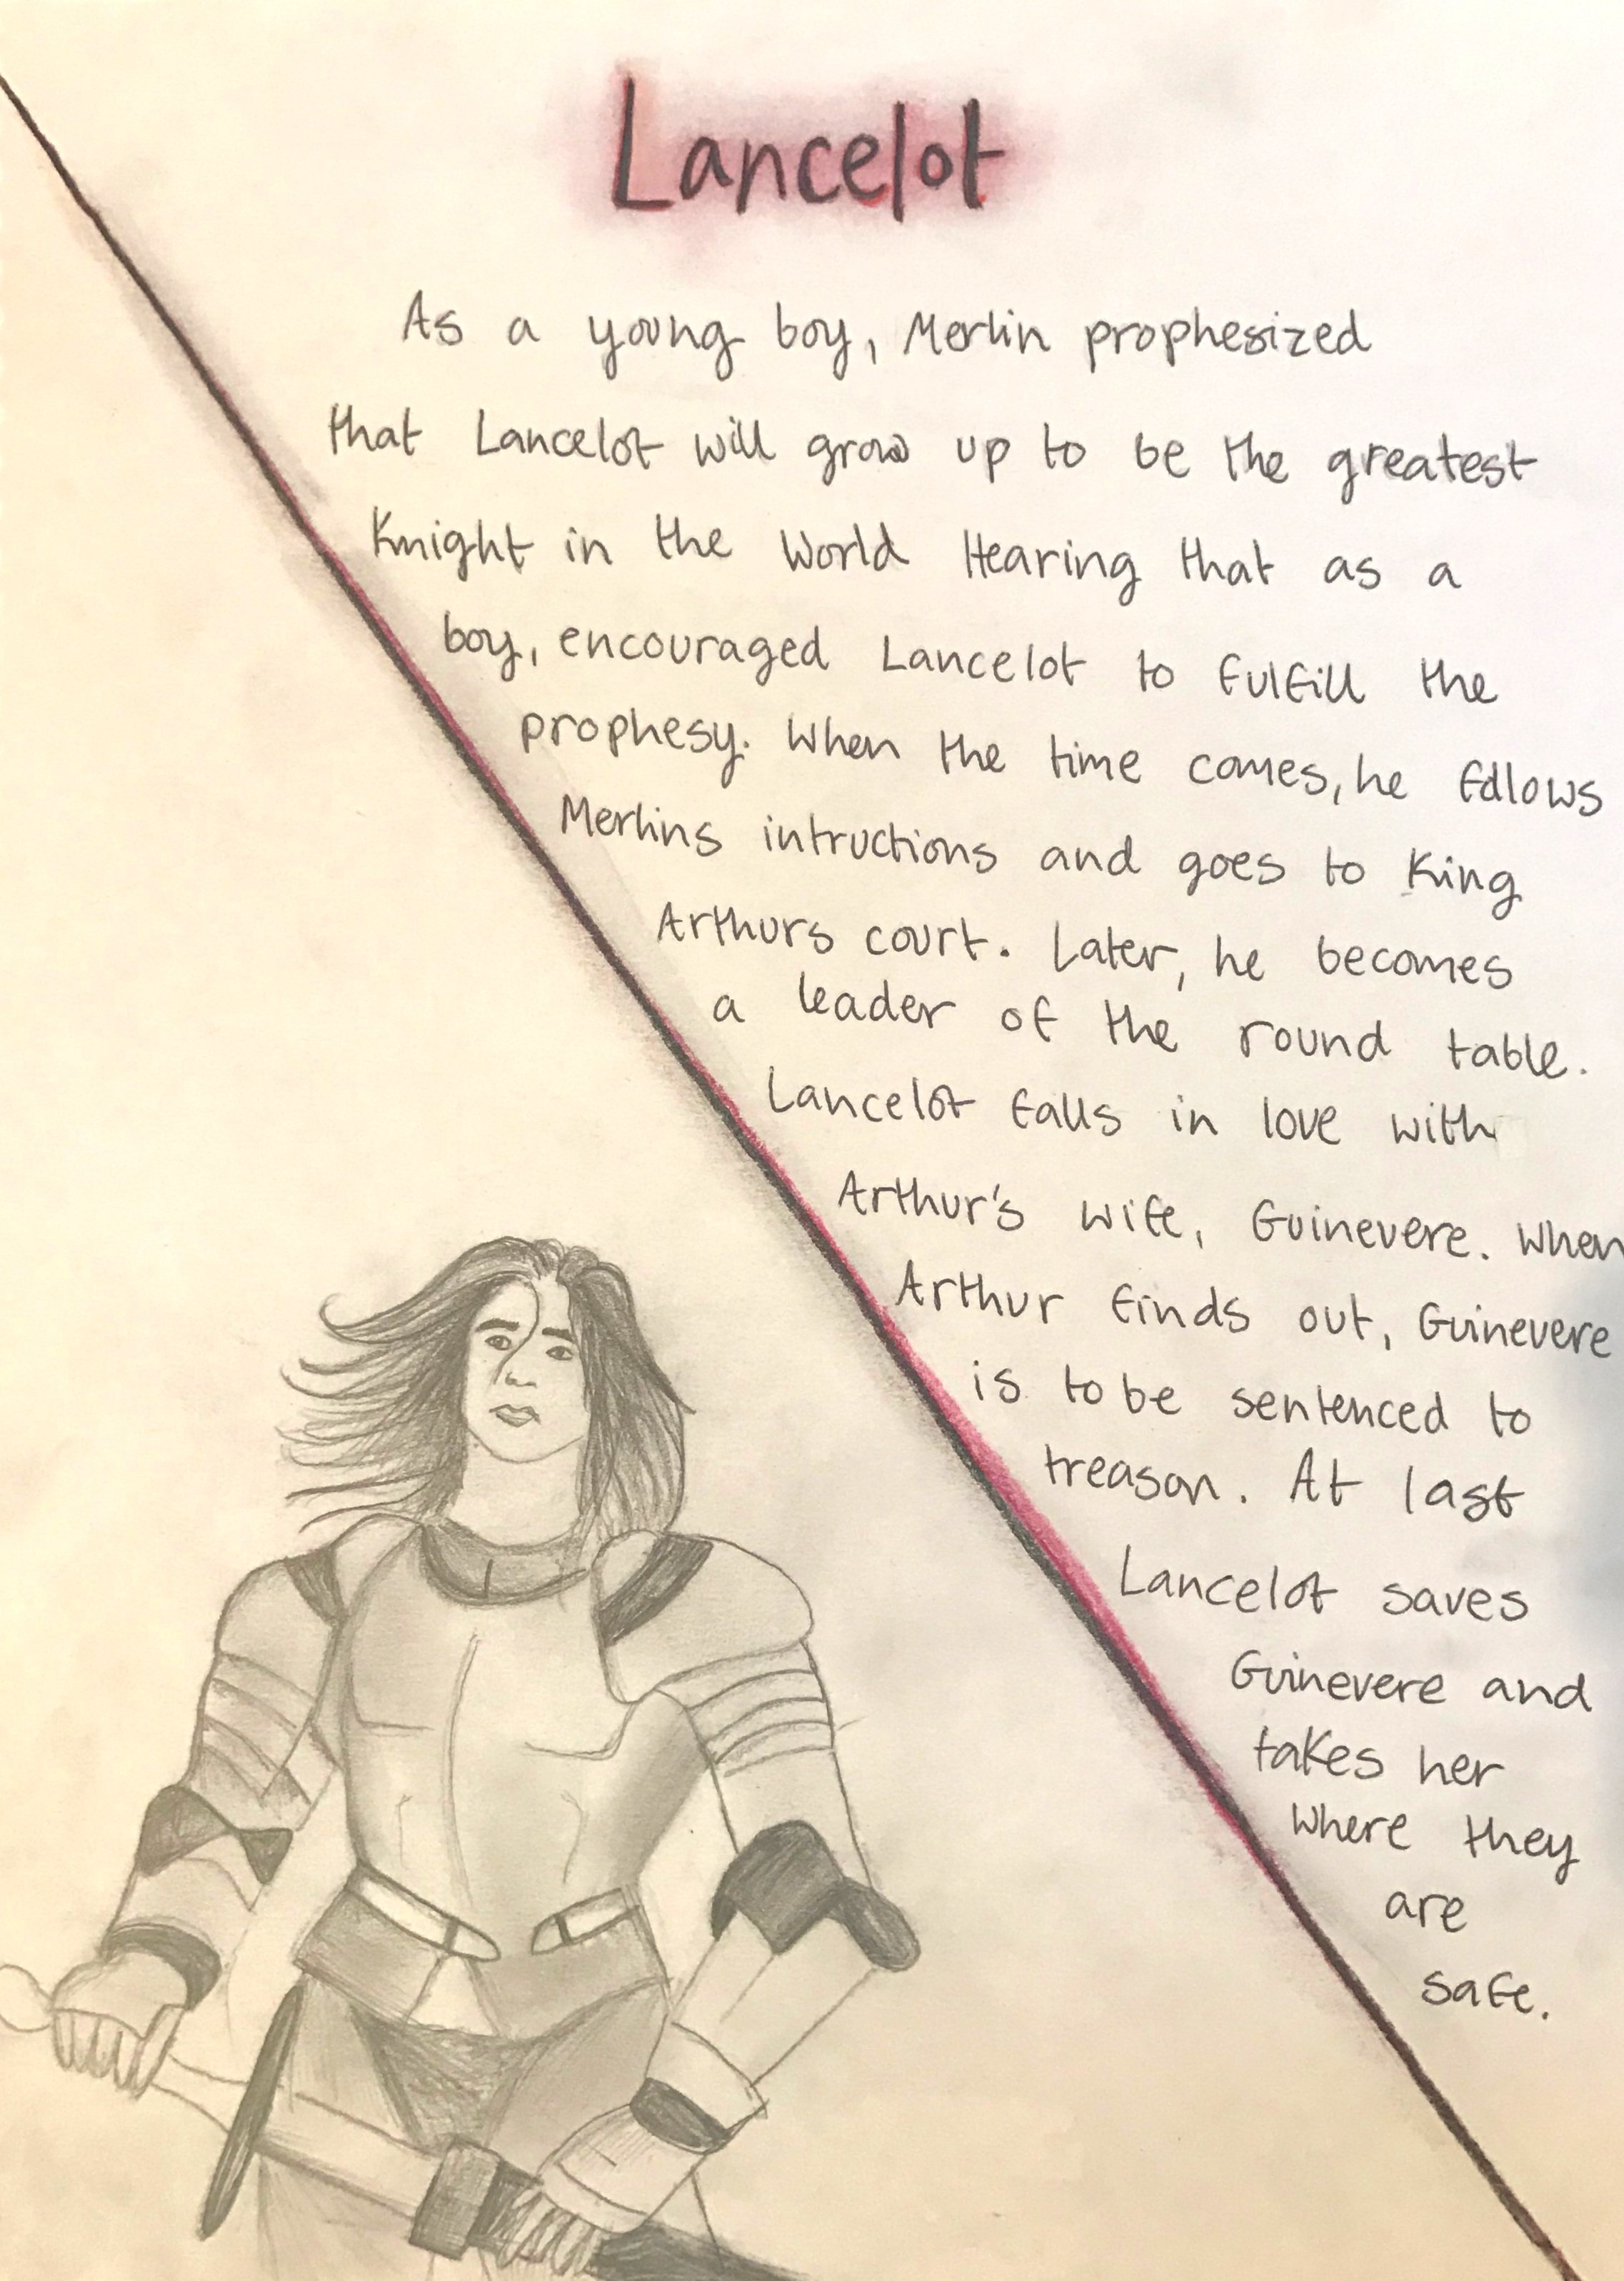 Lancelot
As a young boy, Merlin prophesized
that Lancelot will grow up to be the greatest
Knight in the World Hearing that as a
boy, encouraged Lancelot to fulfill the
prophesy. When the time comes, he follows
Merlins intructions and goes to King
Arthurs court. Later, he becomes
a leader of the round table.
Lancelot falls in love with
Arthur's wife, Guinevere. When
Arthur finds out, Guinevere
is to be sentenced to
treason. At last
Lancelot saves
Guinevere and
takes her
where they
are
safe.